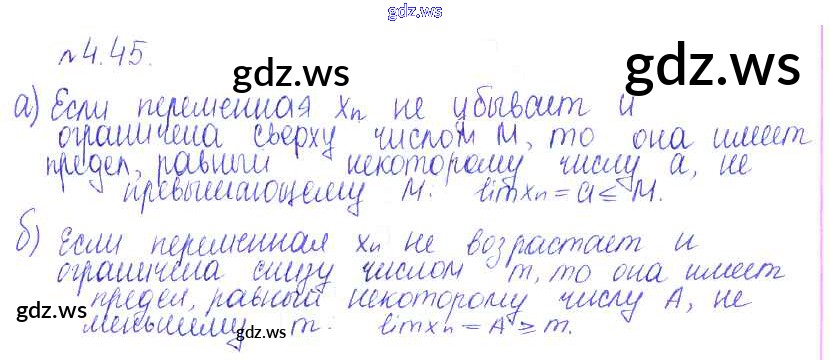 gdz.ws
№4.45.
gdz.ws
gdz.ws
а) Если переменная xₙ не убывает и
ограничена сверху числом M, то она имеет
предел, равный некоторому числу a, не
превышающему M. lim xₙ = a ≤ M.
б) Если переменная xₙ не возрастает и
ограничена снизу числом m, то она имеет
предел, равный некоторому числу A, не
меньшему m. lim xₙ = A ≥ m.
gdz.ws
gdz.ws
gdz.ws